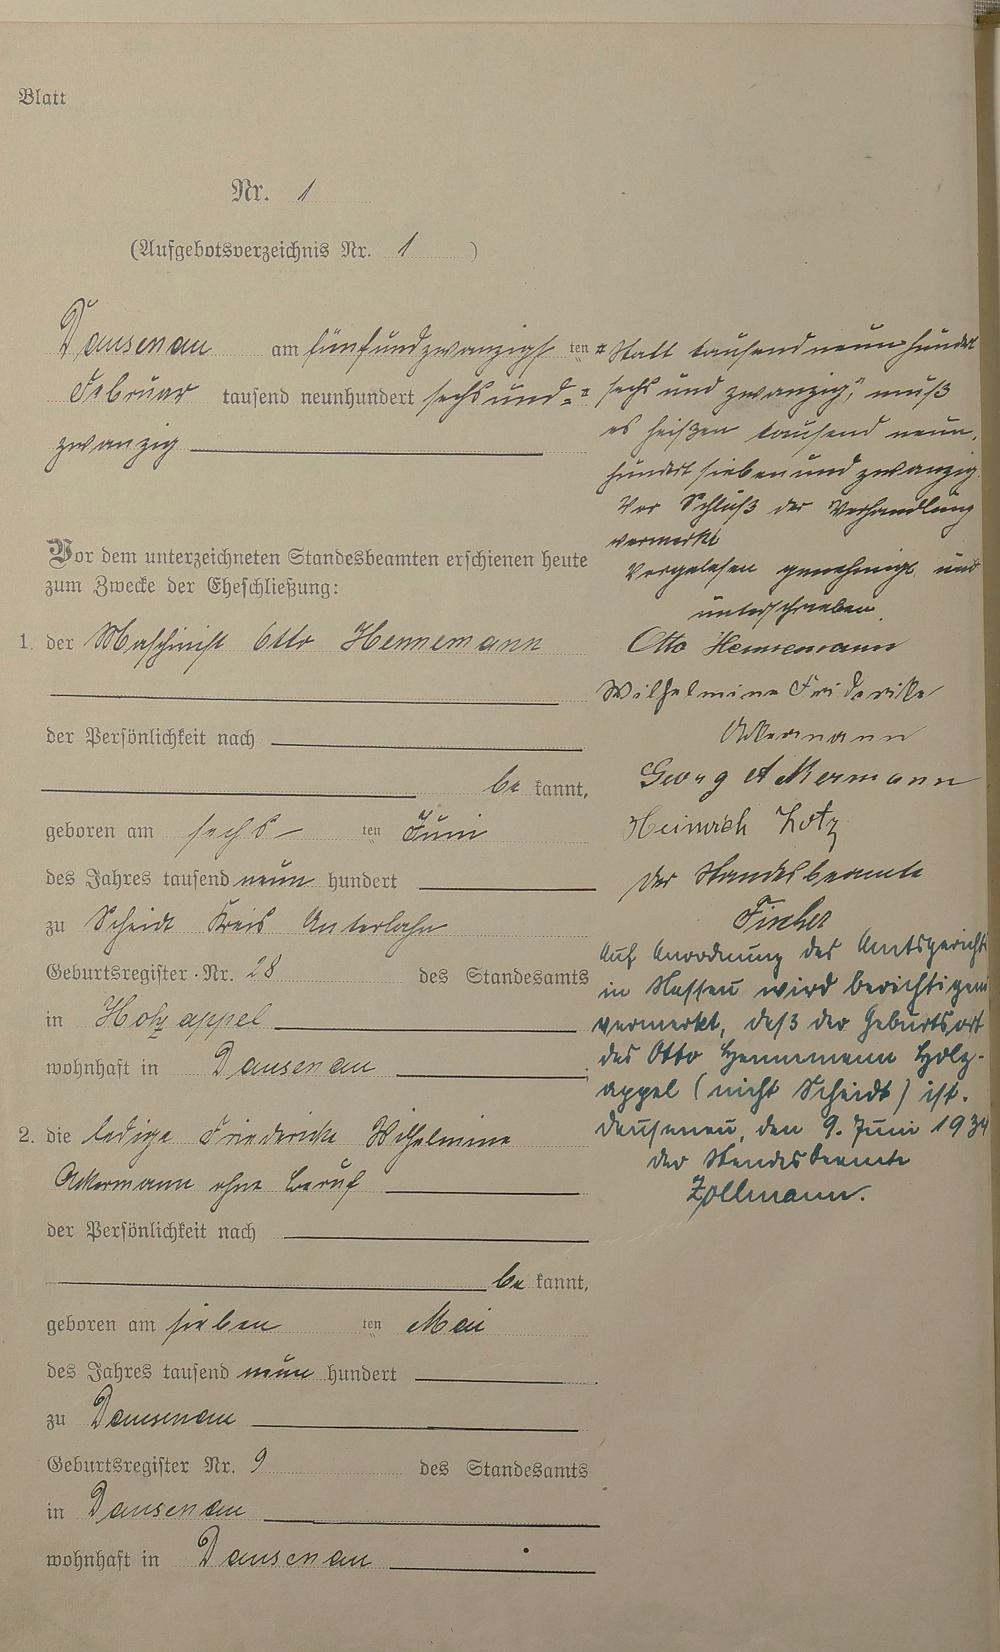 Blatt
Nr. 1
(Aufgebotsverzeichnis Nr. 1 )
Dausenau am fünfundzwanzigs ten
Februar tausend neunhundert sechs und-
zwanzig
Vor dem unterzeichneten Standesbeamten erschienen heute
zum Zwecke der Eheschließung:
1. der Maschinist Otto Hennemann
der Persönlichkeit nach
be kannt,
geboren am sechs ten Juni
des Jahres tausend neun hundert
zu Scheidt Kreis Unterlahn
Geburtsregister Nr. 28 des Standesamts
in Holzappel
wohnhaft in Dausenau
2. die ledige Friedericke Wilhelmine
Ackermann ohne Beruf
der Persönlichkeit nach
be kannt,
geboren am sieben ten Mai
des Jahres tausend neun hundert
zu Dausenau
Geburtsregister Nr. 9 des Standesamts
in Dausenau
wohnhaft in Dausenau
# Statt tausend neun hundert
sechs und zwanzig", muß
es heißen tausend neun,
hundert sieben und zwanzig.
Vor Schluß der Verhandlung
vermerkt
Vorgelesen genehmigt und
unterschrieben.
Otto Hennemann
Wilhelmine Friderike
Ackermann
Georg Ackermann
Heinrich Lotz
Der Standesbeamte
Fischer
Auf Anordnung des Amtsgerichts
in Nassau wird berichtigend
vermerkt, daß der Geburtsort
des Otto Hennemann Holz-
appel (nicht Scheidt) ist.
Dausenau, den 9. Juni 1934
Der Standesbeamte
Zollmann.